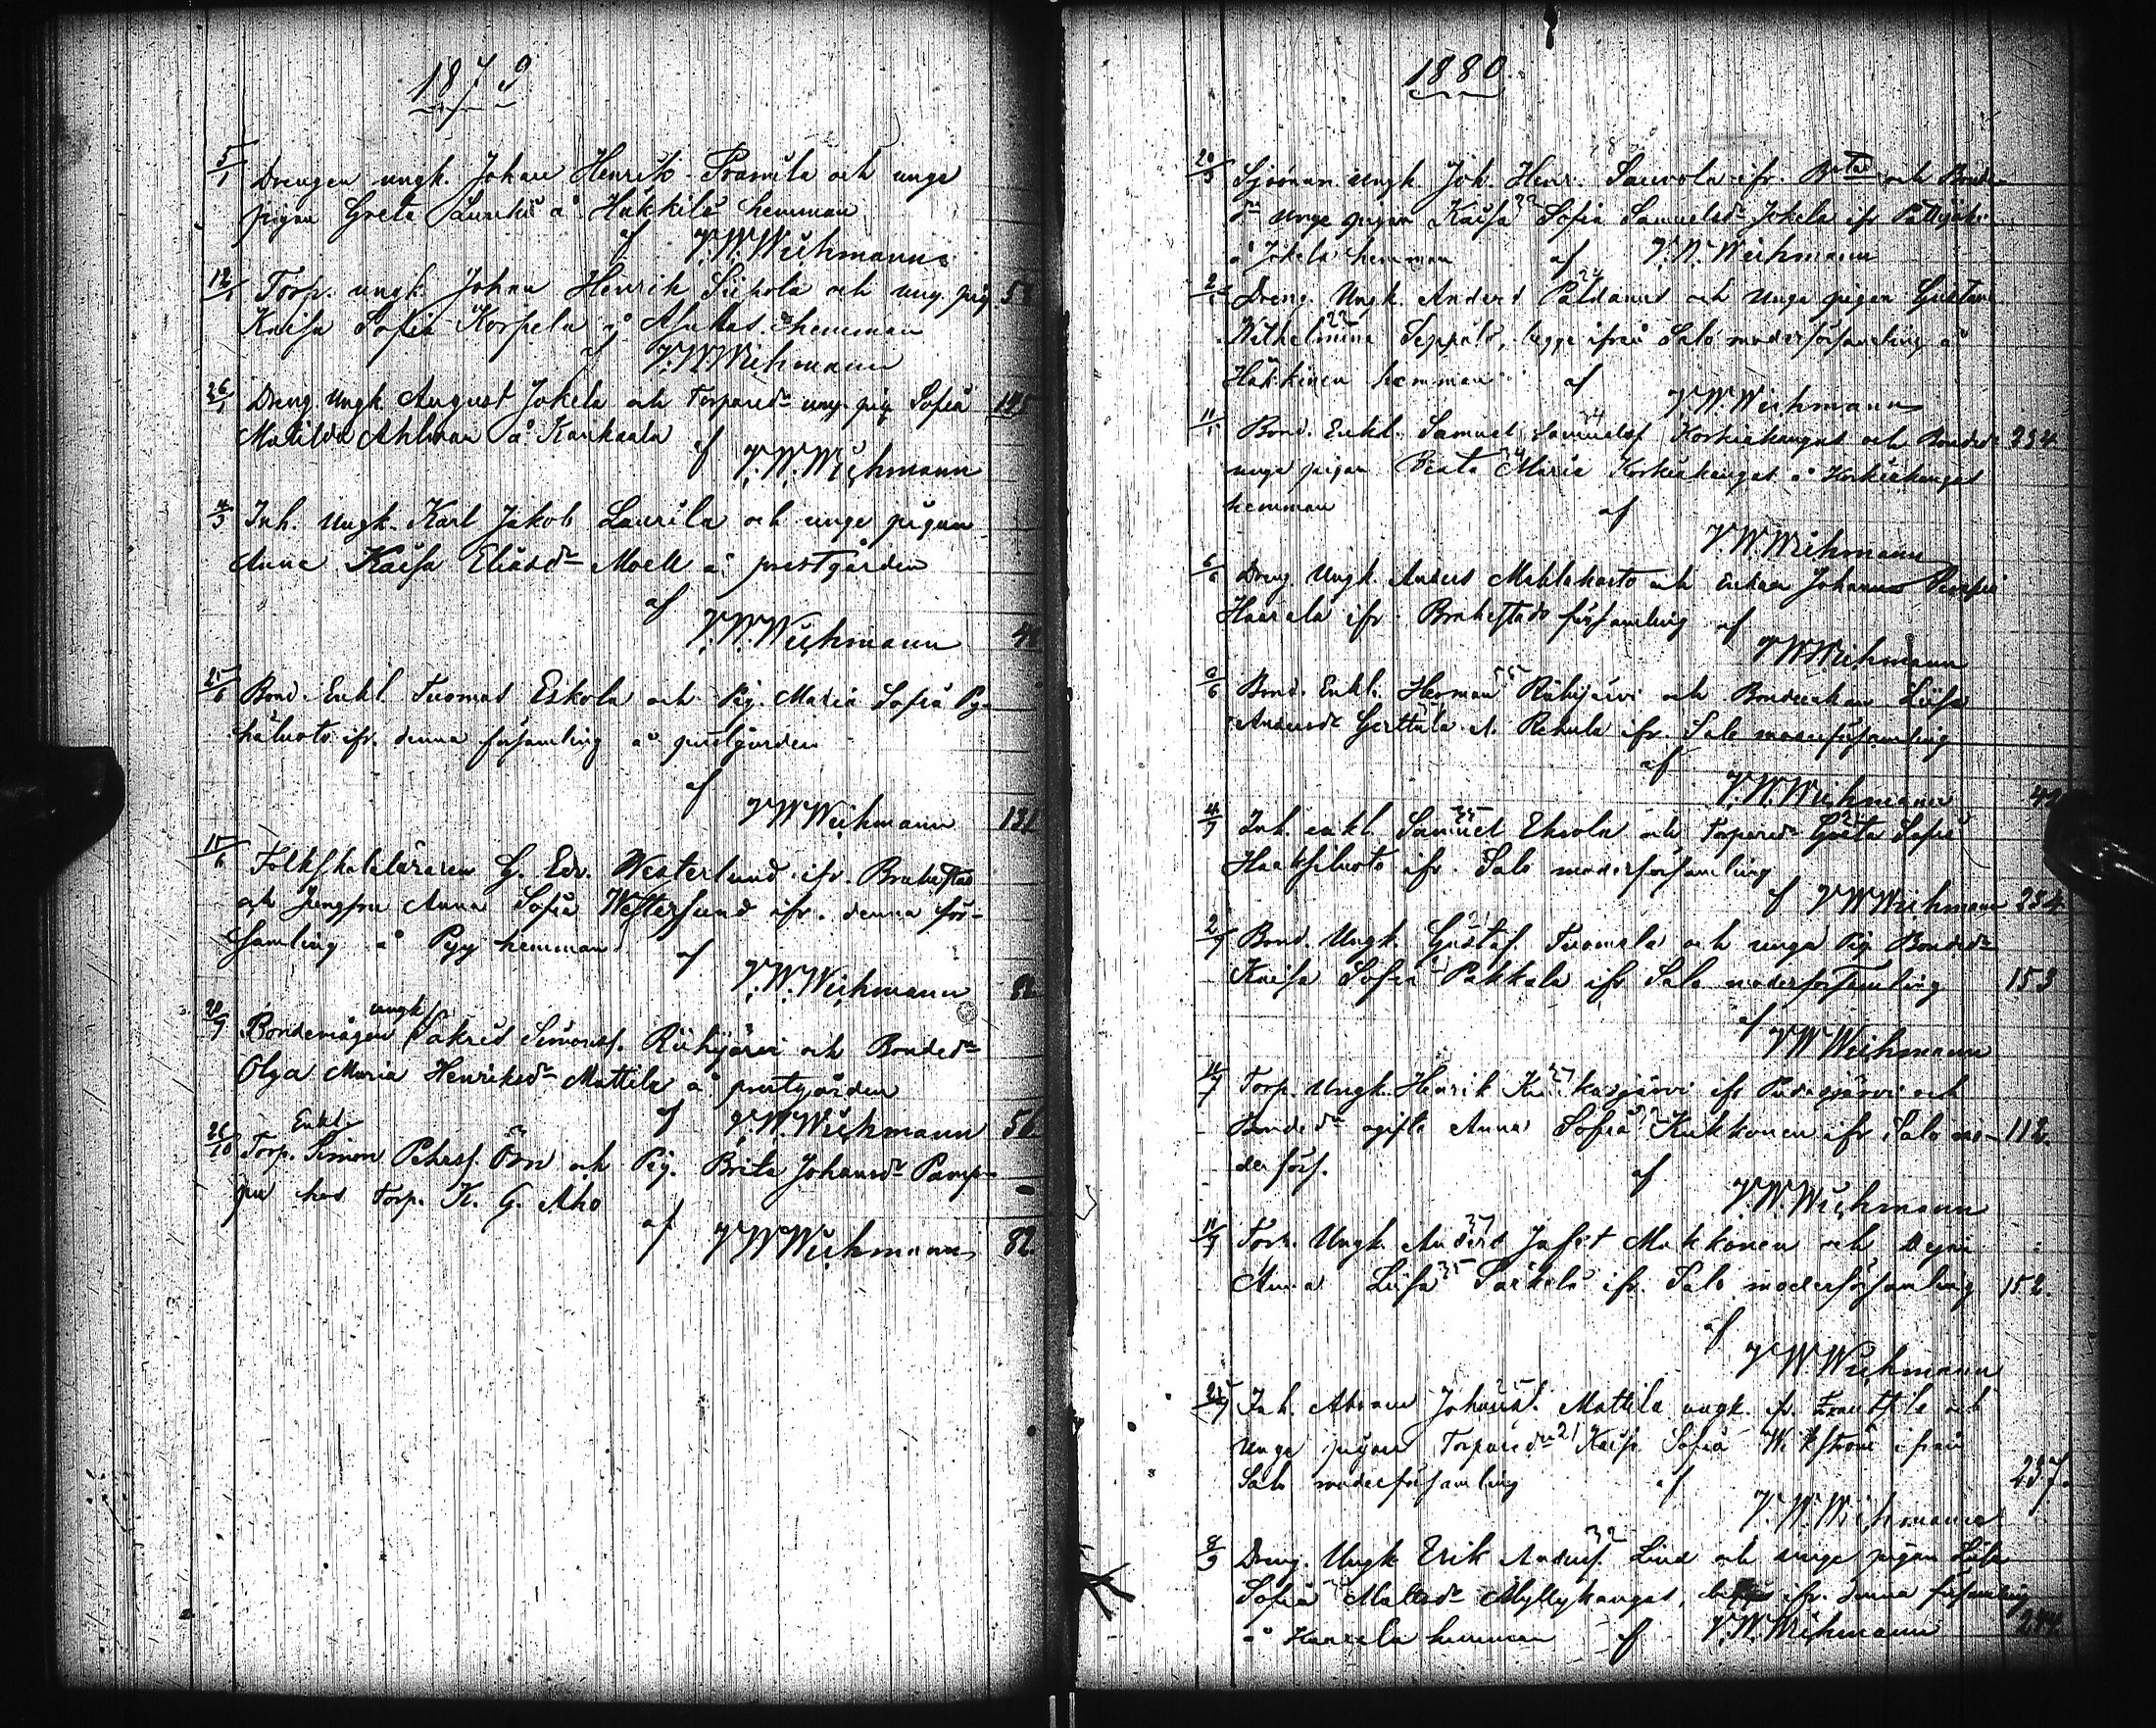 1879
5/1 Drengen ungk. Johan Henrik Pramila och unge
pigan Greta Lumki å Häkkilä hemman
af V. W. Wichmann
12/1 Torp. ungk. Johan Henrik Siipola och ung. pig. 58
Kaisa Sofia Korpela å Asukas hemman
af V. W. Wichmann
26/1 Dreng Ungk. August Jokela och Torpared:r ung. pig Sofia 145
Matilda Ahlman å Karhaala
af V. W. Wichmann
4/3 Inh. Ungk. Karl Jakob Laurila och unge pigan
Anna Kaisa Eliasd:r Moell å prestgården
af V. W. Wichmann
25/6 Bond. Enkl. Tuomas Eskola och Pig. Maria Sofia Py-
häluoto ifr. denna församling å prestgården
af V W Wichmann 131
15/6 Folkskoleläraren G. Edv. Westerlund ifr. Brahestad
och Jungfru Anna Sofia Westerlund ifr. denna för-
samling å Pyy hemman af
V. W. Wichmann 82
ungk.
20/9 Bondemågen Sakris Simonsf. Riihijärvi och Bonded:r
Olga Maria Henriksd:r Mattila å prestgården
af V. W. Wichmann 56
Enkl.
26/10 Torp. Simon Pehrsf. Öm och Pig. Brita Johansd:r Pamp-
hos Torp. K. G. Aho
af V W Wichmann 82.
1880
20/3 Sjöman Ungk. Joh. Henr. Sauvola ifr. B:sta och Bonde-
d:r Unge pigan Kaisa 32 Sofia Samuelsd:r Jokela ifr Pattijoki
å Jokela hemman af V. W. Wichmann
Dreng. Ungk. Anders Paldanius 24 och Unga pigan Gustava
Wilhelmina 22 Seppälä, begge ifrån Salo moderförsamling å
Häkkinen hemman af
V. W. Wichmann
11/ Bond. Enkl. Samuel Samuelsf. Korkiakangas och Bonded:r 234
unga pigan Beata Maria Korkiakangas å Korkiakangas
hemman af
V. W. Wichmann
6/6 Dreng. Ungk. Anders Mahlakarto och Enkan Johanna
Haarala ifr. Brahestads församling af
V W Wichmann
6/6 Bond. Enkl. Herman 55 Riihijärvi och Bondeenkan Liisa
Andersd:r Gerttula l. Rehula ifr. Salo moderförsamling
af
V. W. Wichmann 42
4/7 Inh. enkl. Samuel 35 Ehrola och Torpared:r Greta Sofia
ifr. Salo moderförsamling
af V W Wichmann 234
2/9 Bond. Ungk. Gustaf 21 Tuomala och unga Pig Bonded:r
Kaisa Sofia Pakkala ifr Salo moderförsamling 153
af V W Wichmann
Torp. Ungk. Henrik ifr Pudasjärvi och
Bonded:r ogifta Anna Sofia Kukkonen ifr Salo mo- 112.
derförs. af
V. W. Wichmann
11/7 Torp. Ungk. Anders 37 Jafet Makkonen och Dejan
Anna Liisa 35 Särkelä ifr. Salo moderförsamling 152.
af
V W Wichmann
25/7 Inh. Abram Johansf. 25 Mattila ungk. ifr. Frantsila och
Unge pigan Torpared:r 21 Kaisa Sofia Wikström ifrån
Salo moderförsamling af 237.
V. W. Wichmann
8/9 Dreng. Ungk. Erik Andersf. 32 Lind och unge pigan Liisa
Sofia Mattsd:r Myllykangas, ifr. denna församling
å Haarala hemman af V. W. Wichmann 244.